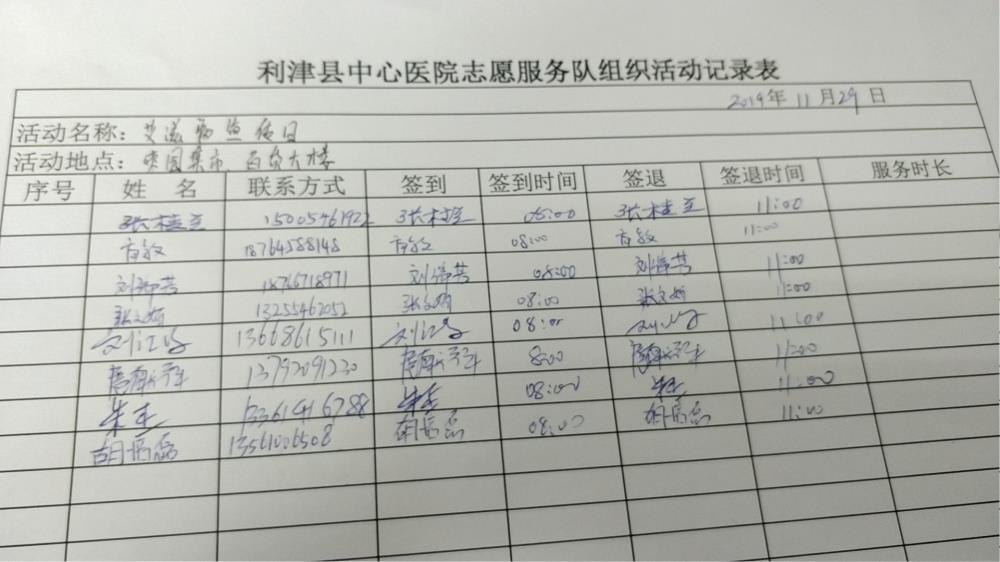 利津县中心医院志愿服务队组织活动记录表
2019年 11月29日
活动名称：艾滋病宣传日
活动地点：集市 百货大楼
序号 姓名 联系方式 签到 签到时间 签退 签退时间 服务时长
张桂兰 15005461922 张桂兰 08:00 张桂兰 11:00
18764588148 08:00 11:00
刘 芸 18766718971 刘 芸 08:00 刘 芸 11:00
张文娟 13255462052 张文娟 08:00 张文娟 11:00
刘江 13668615111 刘江 08:00 11:00
13792091230 8:00 11:00
朱杰 13361416788 朱杰 08:00 朱杰 11:00
胡磊 13561006508 胡磊 08:00 胡磊 11:00